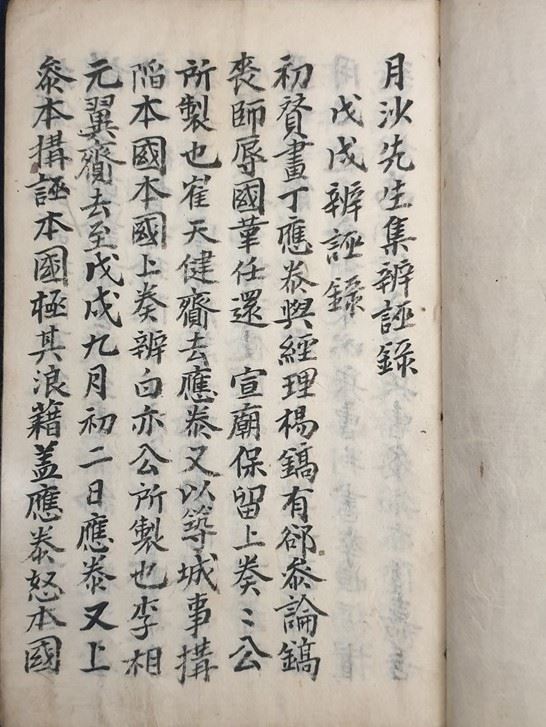 月沙先生集辨誣錄
戊戌辨誣錄
初贊畫丁應泰與經理楊鎬有郤叅論鎬
喪師辱國革任還 宣廟保留上奏〻公
所製也崔天健齎去應泰又以築城事搆
陷本國本國上奏辨白亦公所製也李相
元翼齎去至戊戌九月初二日應泰又上
叅本搆誣本國極其浪藉盖應泰怒本國